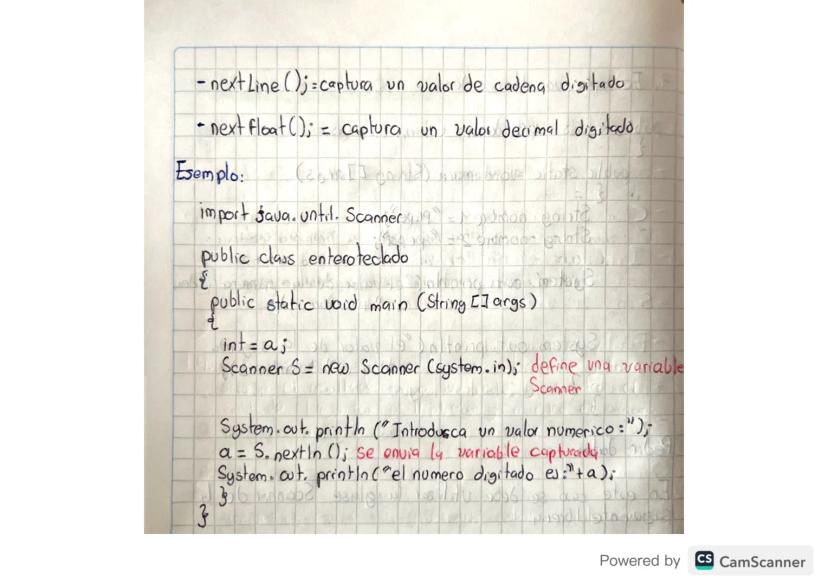 - nextLine(); = captura un valor de cadena digitado
- nextfloat(); = captura un valor decimal digitado
Esemplo:
import java.until.Scanner
public class enteroteclado
{
public static void main (String [] args)
{
int = a;
Scanner S = new Scanner (system.in); define una variable
Scanner
System.out.println ("Introdusca un valor numerico:");
a = S.nextln (); se envia la variable capturada
System.out.println ("el numero digitado es:"+a);
}
}
Powered by CS CamScanner